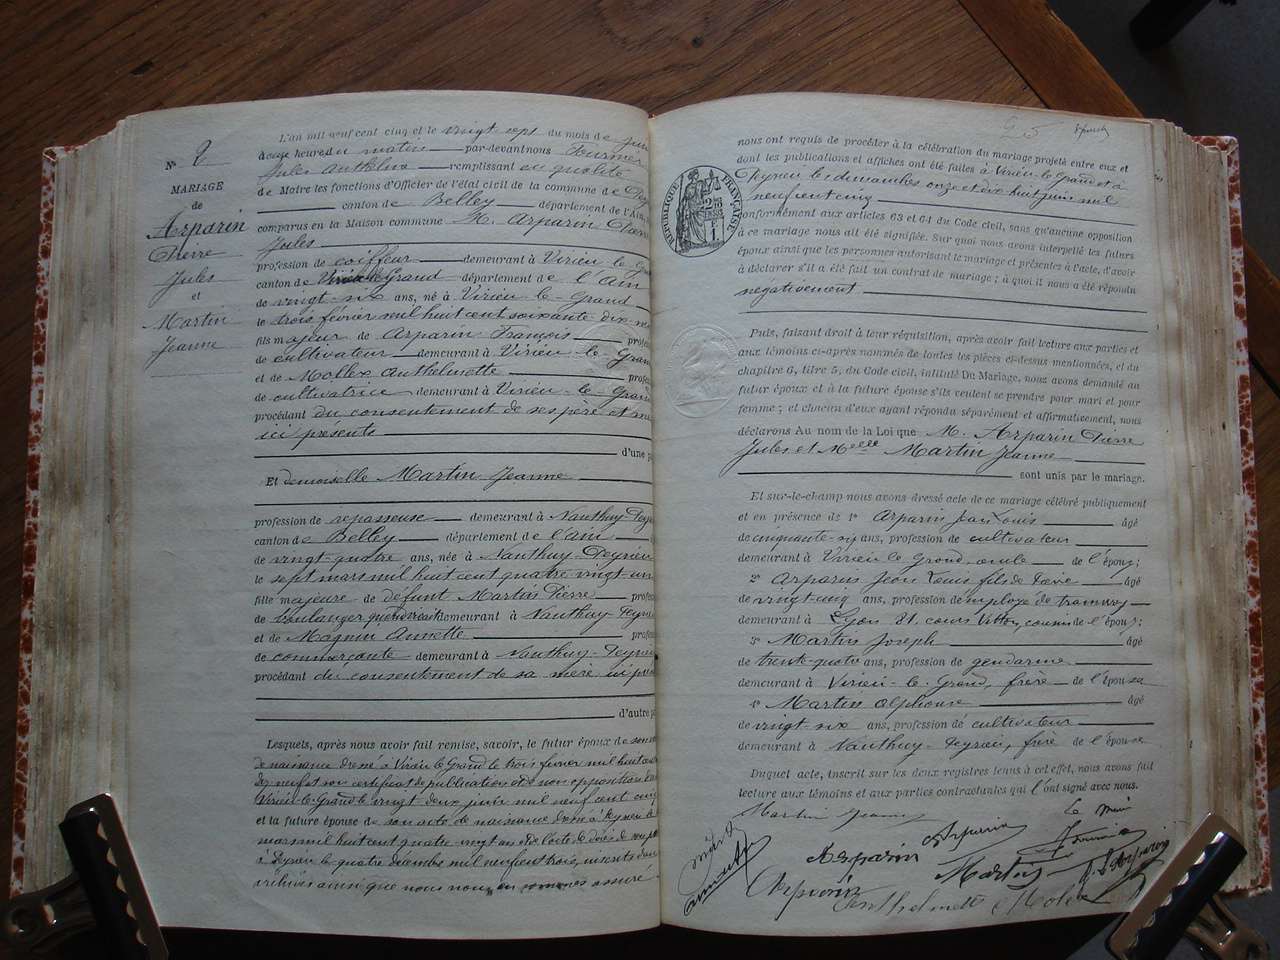 L'an mil neuf cent cinq et le vingt-sept du mois de juin
à onze heures du matin par-devant nous Fournier
Jules Anthelme remplissant en qualité
de Maire les fonctions d'Officier de l'état civil de la commune de Pey
canton de Belley département de l'Ain,
comparus en la Maison commune M. Arparin Pierre
Jules
profession de coiffeur demeurant à Virieu le Gr
canton de Virieu le Grand département de l'Ain
de vingt-six ans, né à Virieu-le-Grand
le trois février mil huit cent soixante dix ne
fils majeur de Arparin François profes
de cultivateur demeurant à Virieu-le-Gran
et de Mollex Anthelmette profes
de cultivatrice demeurant à Virieu-le-Gran
procédant du consentement de ses père et mè
ici présents
d'une pa
Et demoiselle Martin Jeanne
profession de repasseuse demeurant à Nanthuy-Peyri
canton de Belley département de l'Ain
de vingt-quatre ans, née à Nanthuy-Peyrieu
le sept mars mil huit cent quatre vingt-un
fille majeure de défunt Martin Pierre profes
de boulanger quand vivait demeurant à Nanthuy-Peyri
et de Magnin Annette profes
de commerçante demeurant à Nanthuy-Peyri
procédant du consentement de sa mère, ici pré
d'autre pa
Lesquels, après nous avoir fait remise, savoir, le futur époux de son
de naissance dressé à Virieu le Grand le trois février mil huit cent
dix neuf et son certificat de publication et de non opposition
Virieu-le-Grand le vingt deux juin mil neuf cent cinq
et la future épouse de son acte de naissance dressé à Peyrieu le
mars mil huit cent quatre-vingt-un de l'acte de décès de son père
à Peyrieu le quatre décembre mil neuf cent trois, inscrits dans
archives ainsi que nous nous en sommes assuré
N° 2
MARIAGE
de
Arparin
Pierre
Jules
et
Martin
Jeanne
25
RÉPUBLIQUE FRANÇAISE
nous ont requis de procéder à la célébration du mariage projeté entre eux et
dont les publications et affiches ont été faites à Virieu-le-Grand et à
Peyrieu les dimanches onze et dix huit juin mil
neuf cent cinq
conformément aux articles 63 et 64 du Code civil, sans qu'aucune opposition
à ce mariage nous ait été signifiée. Sur quoi nous avons interpellé les futurs
époux ainsi que les personnes autorisant le mariage et présentes à l'acte, d'avoir
à déclarer s'il a été fait un contrat de mariage ; à quoi il nous a été répondu
négativement
Puis, faisant droit à leur réquisition, après avoir fait lecture aux parties et
aux témoins ci-après nommés de toutes les pièces ci-dessus mentionnées, et du
chapitre 6, titre 5, du Code civil, intitulé Du Mariage, nous avons demandé au
futur époux et à la future épouse s'ils veulent se prendre pour mari et pour
femme ; et chacun d'eux ayant répondu séparément et affirmativement, nous
déclarons Au nom de la Loi que M. Arparin Pierre
Jules et Melle Martin Jeanne
sont unis par le mariage.
Et sur-le-champ nous avons dressé acte de ce mariage célébré publiquement
et en présence de 1° Arparin Jean Louis âgé
de cinquante-six ans, profession de cultivateur
demeurant à Virieu le Grand, oncle de l'époux;
2° Arparin Jean Louis fils de Pierre âgé
de vingt-cinq ans, profession de employé de tramway
demeurant à Lyon 21 cours Vitton, cousin de l'époux;
3° Martin Joseph âgé
de trente quatre ans, profession de gendarme
demeurant à Virieu-le-Grand, frère de l'épouse
4° Martin Alphonse âgé
de vingt-six ans, profession de cultivateur
demeurant à Nanthuy-Peyrieu, frère de l'épouse
Duquel acte, inscrit sur les deux registres tenus à cet effet, nous avons fait
lecture aux témoins et aux parties contractantes qui l'ont signé avec nous.
Martin Jeanne
Le Maire
Arparin
Arparin
Martin
Fournier
Arparin
Anthelmette Mollex